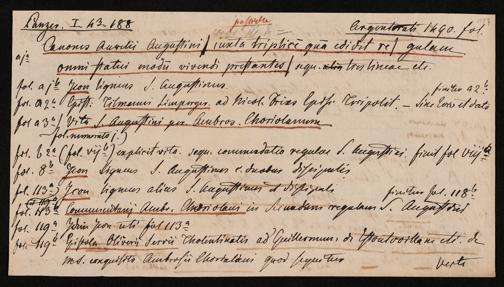 Panzer. I. 43. 188 Argentorati 1490. fol.
Canones Aurelii Augustini / iuxta triplicē quā edidit re/gulam
omni statui modū vivendi prestantes / sequ. tres lineae etc.
fol. aj b Icon ligneus S. Augustinus. finitur a2 b
fol. a2 a Epist. ad Nicol. Episc. Tripolit. — sine loco et dato
fol. a3 a Vita S. Augustini per Ambros. Choriolanum
fol. numerato j
fol. 62 a (fol. vij b) explicit vita. sequ. commendatio regulae S. Augustini. finit fol vij b
fol. 8 b Icon ligneus S. Augustinus c. duobus discipulis
fol. 113 a Icon ligneus alius S. Augustinus et discipuli finitur fol. 118 b
Commentarius Ambr. Choriolani in Secundam regulam S. Augustini
fol. 119 a Idem Icon uti fol 113 a
fol. 119 b Epistola Oliverii Servii Tholentinatis ad Guillermum de Estoutevilla etc. de
ms. conquisito Ambrosii Choriolani quod sequitur
verte